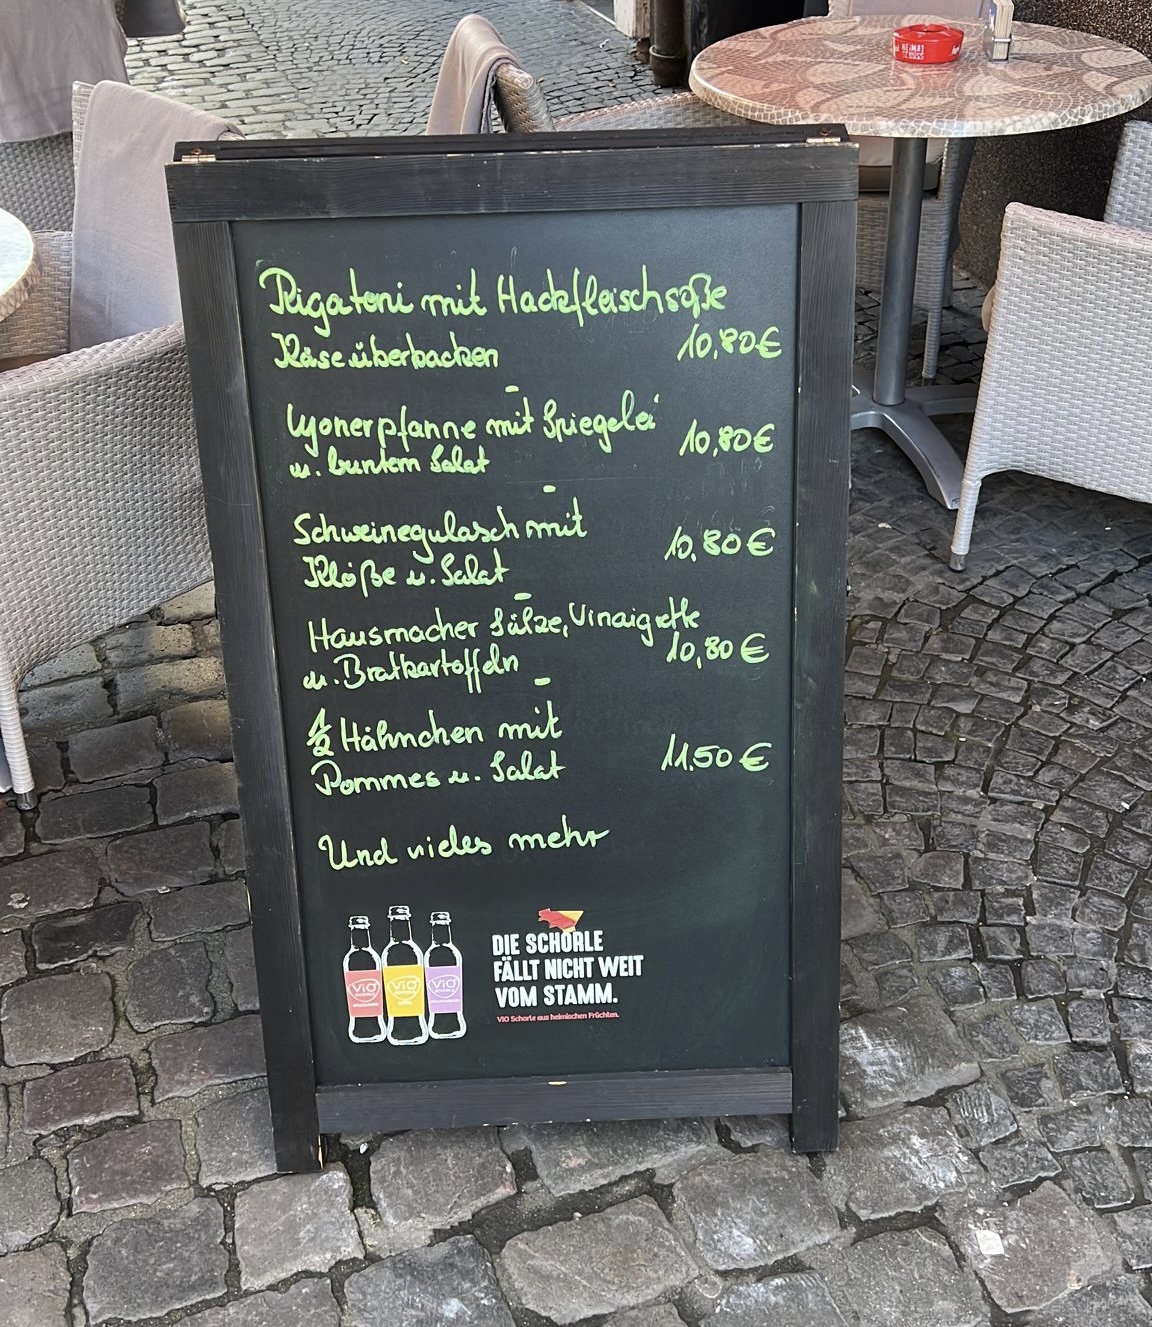 Rigatoni mit Hackfleischsoße
Käseüberbacken 10,80€
-
Lyonerpfanne mit Spiegelei
u. buntem Salat 10,80€
-
Schweinegulasch mit
Klöße u. Salat 10,80€
-
Hausmacher Sülze, Vinaigrette
u. Bratkartoffeln 10,80€
-
1/2 Hähnchen mit
Pommes u. Salat 11,50€
Und vieles mehr
ViO ViO ViO
DIE SCHORLE
FÄLLT NICHT WEIT
VOM STAMM.
ViO Schorle aus heimischen Früchten.
HEIMAT
GENUSS